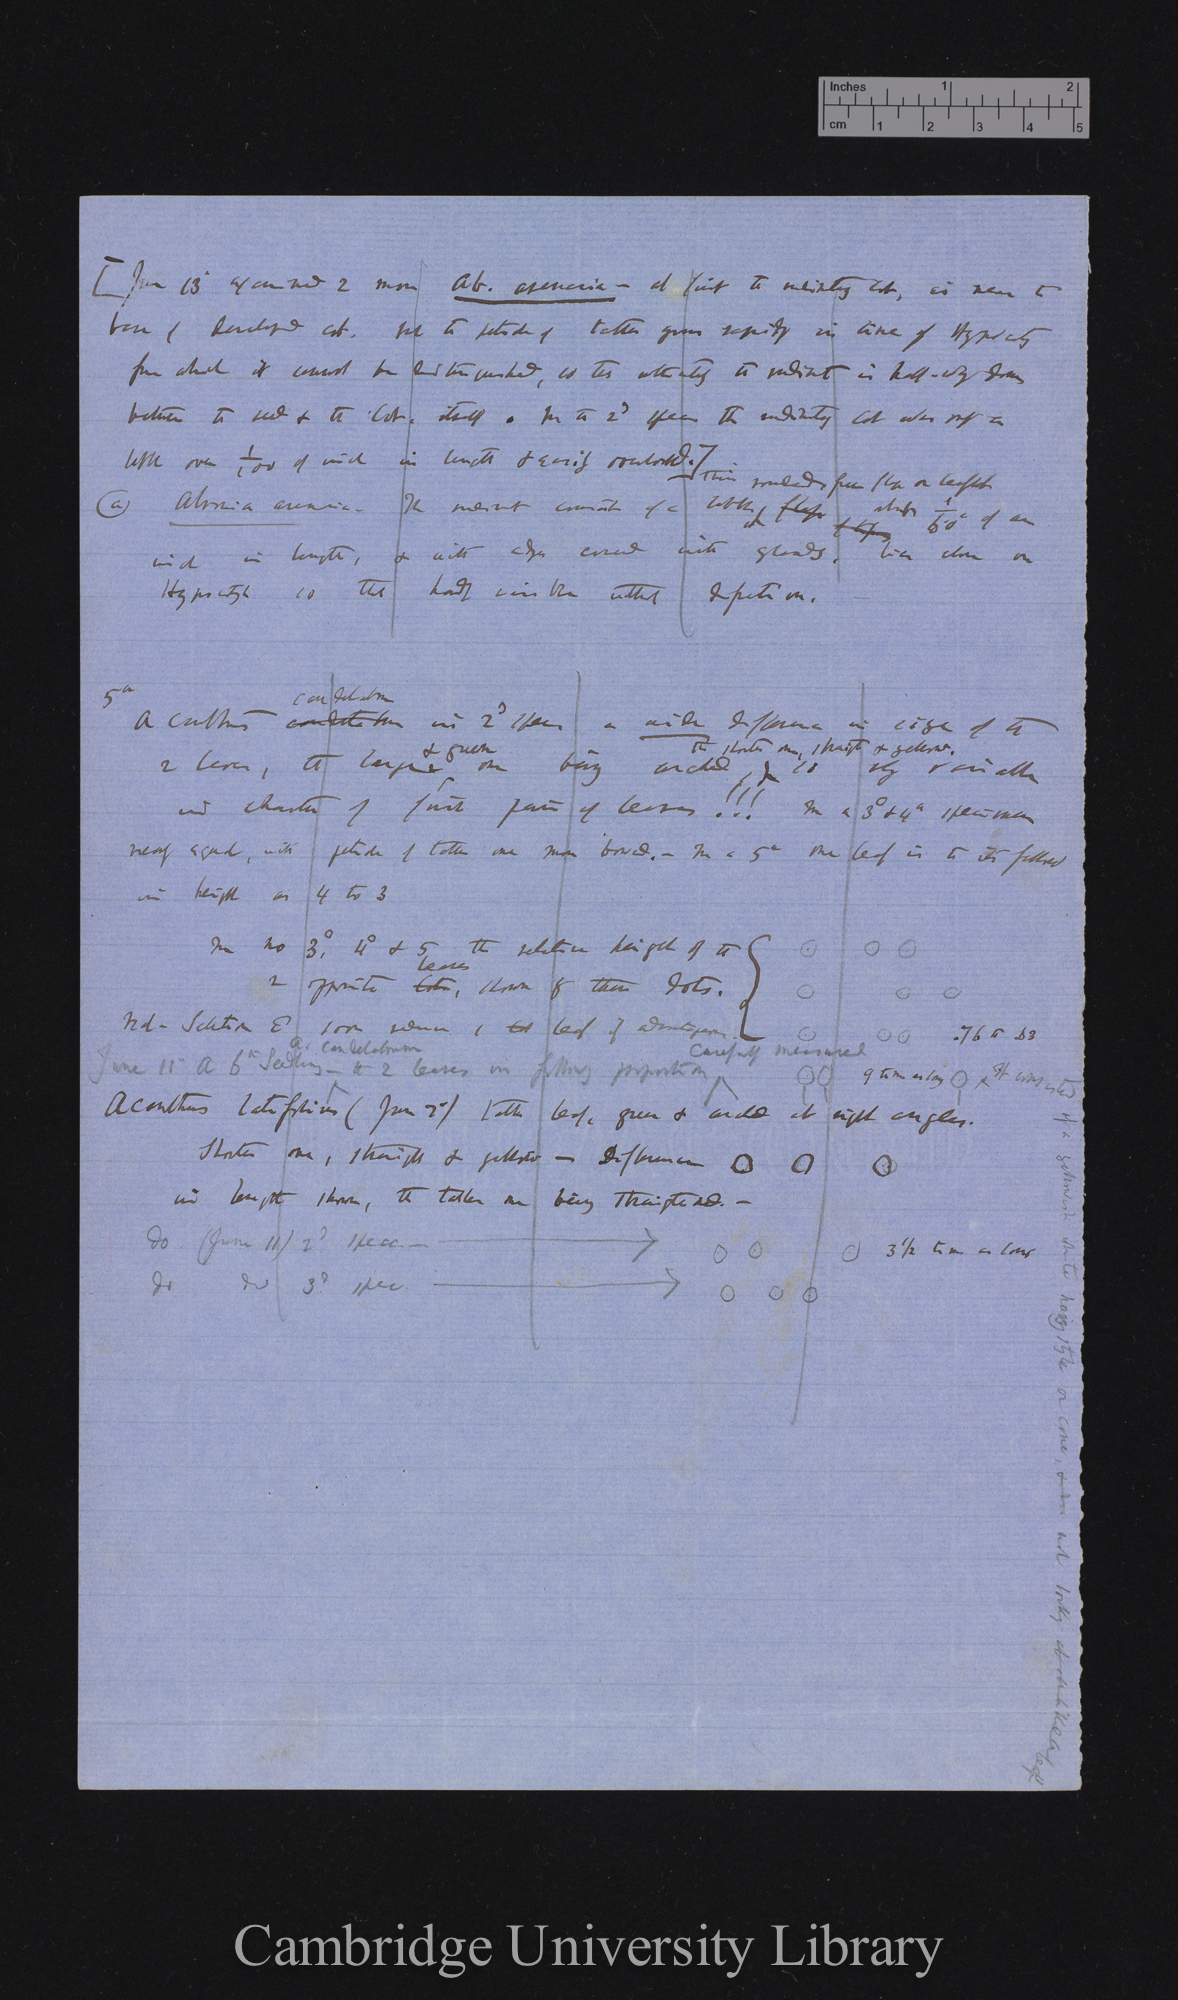 Inches 1 2
cm 1 2 3 4 5
[June 13 examined 2 more Ab. arenaria — at first the rudimentary cot, is near to
base of developed cot. but the petiole of latter grows rapidly in line of Hypocotyl
from which it cannot be distinguished, so that ultimately the rudiment is half-way down
between the seed & the Cot. itself. In the 2d specimen the rudimentary cot was only a
little over 1/100 of inch in length & easily overlooked.]
(a) Abronia arenaria — The rudiment consists of a little
thin rounded
about 1/60th of an
inch in length, & with edges covered with glands, lies close on
Hypocotyl so that hardly visible without dissection.
5th
candelabrum
Acanthus in 2d specimen a wide difference in size of the
& green
the shorter one, straight & yellow.
2 leaves, the larger one being arched, so very variable
in character of first pair of leaves!!! In a 3d & 4th specimen
nearly equal, with petiole of latter one more bowed. — In a 5th one leaf is to its fellow
in height as 4 to 3
In no 3d, 4th & 5 the relative height of the
leaves
2 opposite shown by these dots.
Nat. Selection soon reduce leaf if advantageous
.76 to 53
A. candelabrum
Carefully measured
June 11th A 6th Seedling — the 2 leaves in following proportion
9 times as long
Acanthus latifolius (June 2d) taller leaf, green & arched at right angles.
Shorter one, straight & yellow — Difference
in length shown, the taller one being straightened. —
do (June 11) 2d spec. —
3 1/2 times as long
do do 3d spec
It consisted of a yellowish white style or cone, & did not look at all like a leaf
Cambridge University Library